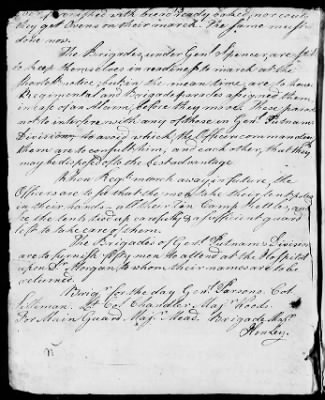 be furnished with bread ready baked, nor could
they get Ovens on their march. The same must be
done now.
The Brigades, under Genl Spencer, are first
to keep themselves in readiness to march at the
shortest notice, but in the mean time, are to have
Regimental and Brigade parades assigned them
in case of an Alarm, before they move. These parades
not to interfere with any of those in Genl Putnam's
Division. To avoid which the Officers commanding
them are to consult him, and each other, that they
may be disposed to the best advantage.
When Regts march away in future, the
Officers are to see that the men take their tent poles
in their hands, all their Tin Camp Kettles, and
see the tents tied up carefully & a sufficient guard
left to take care of them.
The Brigades of Genl Putnams Division
are to furnish fifty men to attend at the Hospital
upon Dr Morgan, to whom their names are to be
returned.
Brigr for the day Genl Parsons, Col
Silliman, Lt Col Chandler, Majr
For Main Guard, Majr Mead. Brigade Majr
Henley.